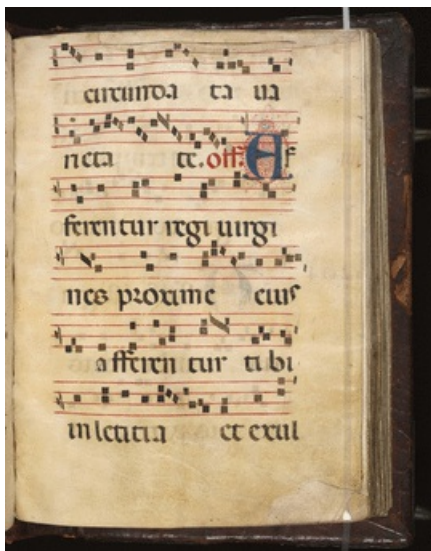 circumda ta ua
rieta te. off. Af
ferentur regi uirgi
nes proxime eius
afferen tur tibi
in leticia et exul